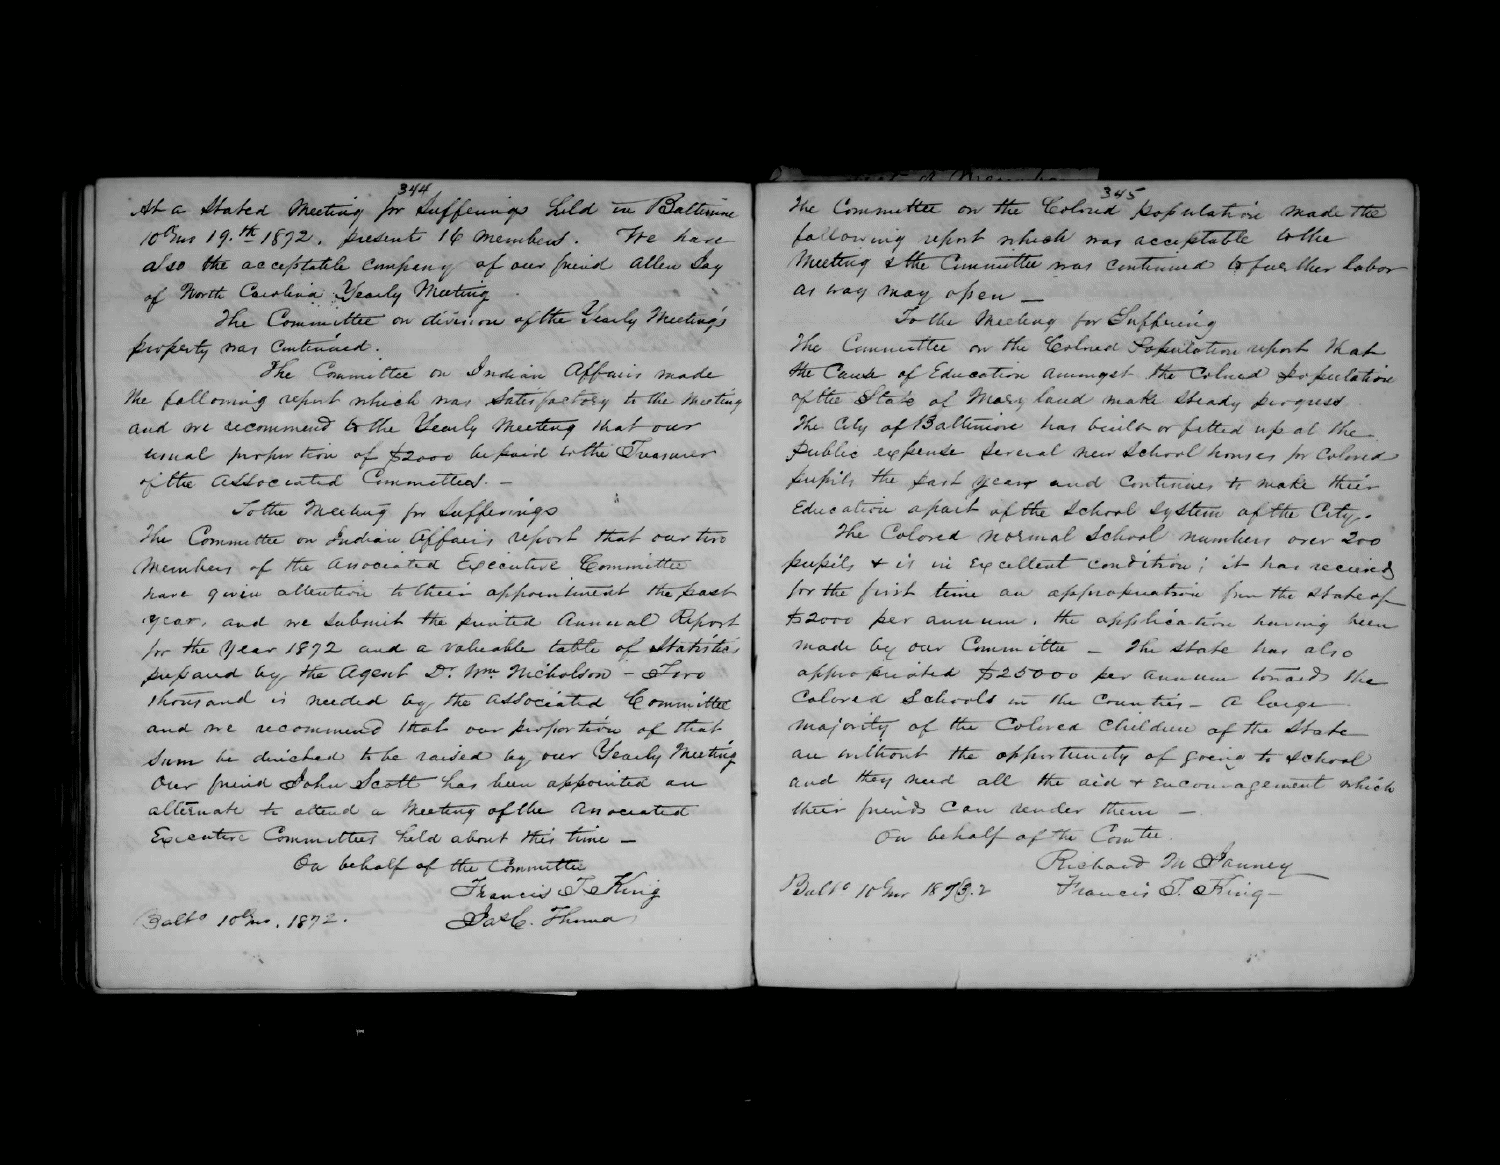 344
At a Stated Meeting for Sufferings held in Baltimore
10th mo 19.th 1872. present 16 members. We have
also the acceptable company of our friend Allen Jay
of North Carolina Yearly Meeting
The Committee on division of the Yearly Meeting's
property was continued.
The Committee on Indian Affairs made
the following report which was satisfactory to the Meeting
and we recommend to the Yearly Meeting that our
usual proportion of $2000 be paid to the Treasurer
of the Associated Committees. —
To the Meeting for Sufferings
The Committee on Indian Affairs report that our two
members of the Associated Executive Committee
have given attention to their appointment the past
year, and we submit the printed Annual Report
for the year 1872 and a valuable table of Statistics
prepared by the Agent Dr. Wm. Nicholson — Two
thousand is needed by the Associated Committee
and we recommend that our proportion of that
sum be directed to be raised by our Yearly Meeting
Our friend John Scott has been appointed an
alternate to attend a Meeting of the Associated
Executive Committees held about this time —
On behalf of the Committee
Francis T. King
Jas C. Thomas
Balto 10th mo. 1872.
345
The Committee on the Colored population made the
following report which was acceptable to the
Meeting & the Committee was continued to further labor
as way may open —
To the Meeting for Suffering
The Committee on the Colored Population report that
the Cause of Education amongst the Colored population
of the State of Maryland make steady progress
The City of Baltimore has built or fitted up at the
public expense several new School houses for Colored
pupils the past year and continues to make their
Education a part of the School System of the City.
The Colored normal School numbers over 200
pupils & is in excellent condition; it has received
for the first time an appropriation from the State of
$2000 per annum. the application having been
made by our Committee — The State has also
appropriated $25000 per annum towards the
Colored Schools in the Counties — A large
majority of the Colored Children of the State
are without the opportunity of going to School
and they need all the aid & encouragement which
their friends can render them —
On behalf of the Comtee.
Richard M Janney
Balto 10th mo 1873.2 Francis T. King —